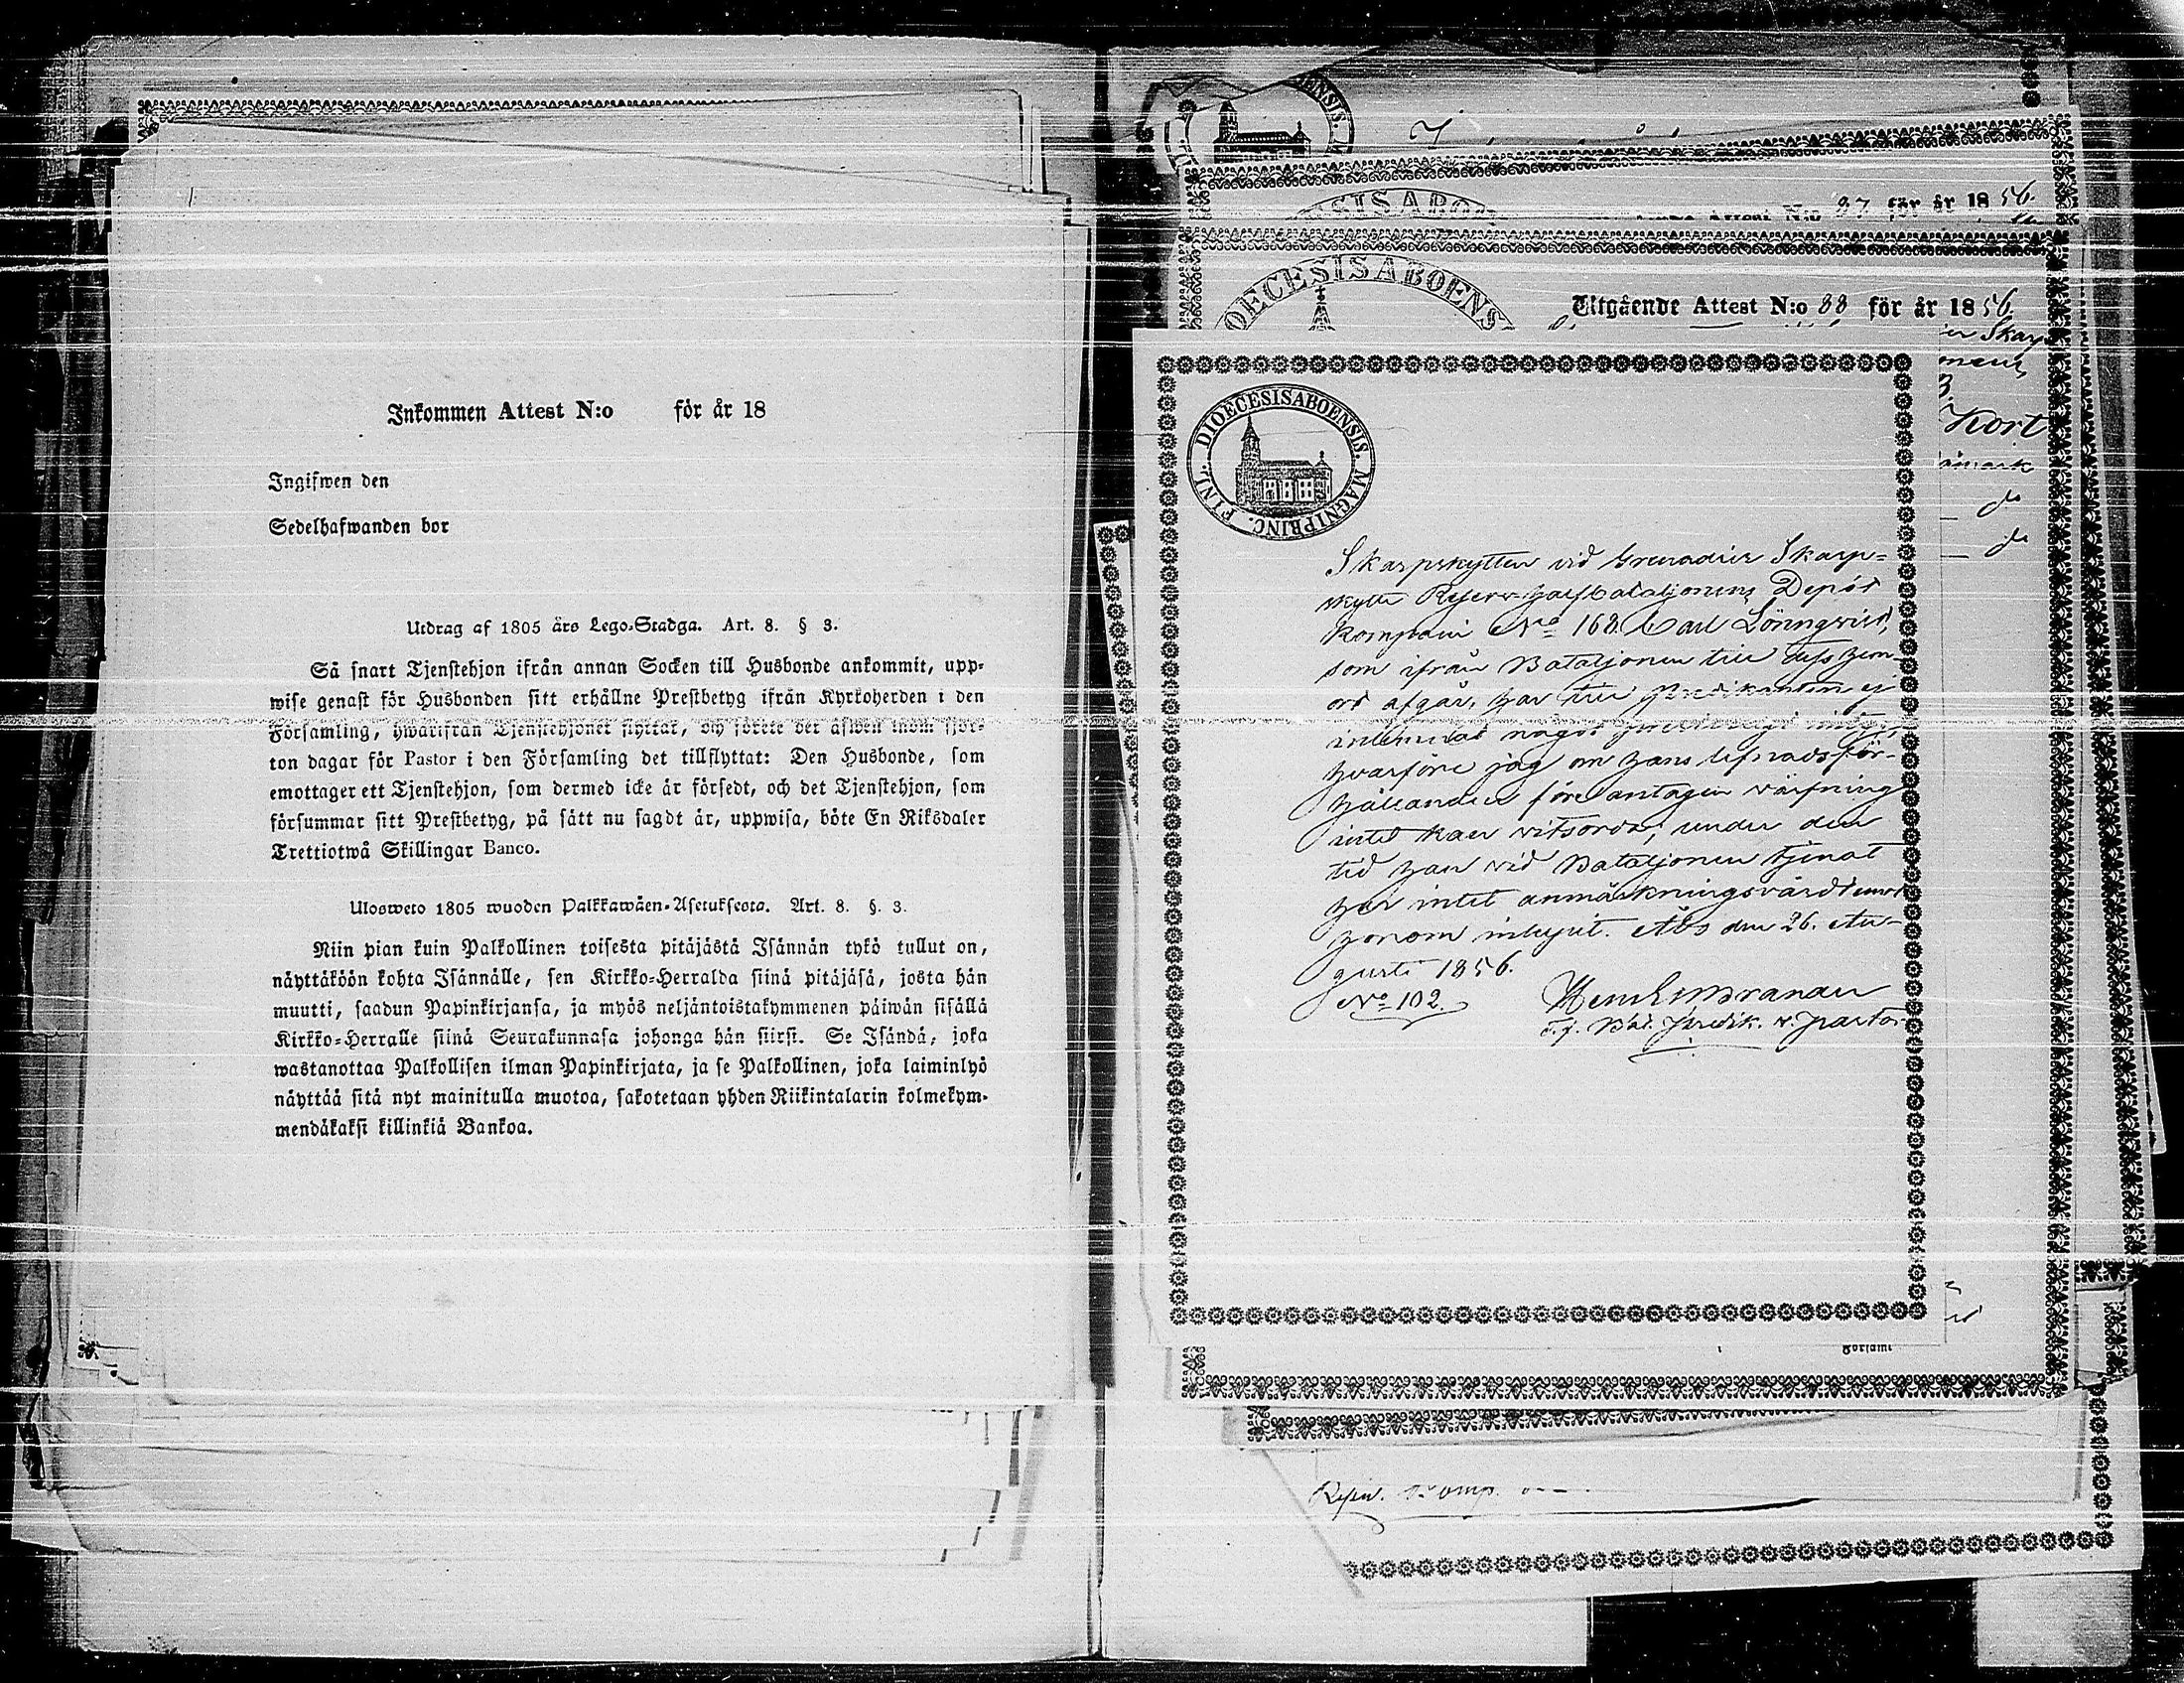 Inkommen Attest N:o för år 18
Ingifwen den
Sedelhafwanden bor
Utdrag af 1805 års Lego-Stadga. Art. 8. § 3.
Så snart Tjenstehjon ifrån annan Socken till Husbonde ankommit, upp-
wise genast för Husbonden sitt erhållne Prestbetyg ifrån Kyrkoherden i den
Församling, hwarifrån Tjenstehjonet flyttat, och förete det äfwen inom fjor-
ton dagar för Pastor i den Församling det tillflyttat: Den Husbonde, som
emottager ett Tjenstehjon, som dermed icke är försedt, och det Tjenstehjon, som
försummar sitt Prestbetyg, på sätt nu sagdt är, uppwisa, böte En Riksdaler
Trettiotwå Skillingar Banco.
Ulosweto 1805 wuoden Palkkawäen-Asetuksesta. Art. 8. §. 3.
Niin pian kuin Palkollinen toisesta pitäjästä Isännän tykö tullut on,
näyttäköön kohta Isännälle, sen Kirkko-Herralda siinä pitäjäsä, josta hän
muutti, saadun Papinkirjansa, ja myös neljäntoistakymmenen päiwän sisällä
Kirkko-Herralle siinä Seurakunnasa johonga hän siirsi. Se Isändä, joka
wastanottaa Palkollisen ilman Papinkirjata, ja se Palkollinen, joka laiminlyö
näyttää sitä nyt mainitulla muotoa, sakotetaan yhden Riikintalarin kolmekym-
mendäkaksi killinkiä Bankoa.
N:o 87 för år 1856.
DIOECESIS ABOENS
Utgående Attest N:o 88 för år 1856.
Kort
DIOECESIS ABOENSIS. MAGNI PRINC. FINL.
Skarpskytten vid Grenadier Skarp=
skytte Reserv halfbataljonens Depôt
Kompani No 168 Carl Lönnqvist,
som ifrån Bataljonen till dess hem-
ort afgår, har till Predikanten ej
inlemnat något
hvarföre jag om hans lefnadsför-
hållanden före antagen värfning
intet kan vitsorda; under den
tid han vid Bataljonen tjenat
har intet anmärkningsvärdt emot
honom inlupit. Åbo den 26. Au-
gusti 1856.
No 102.
t.f. Bat. Predik. v. Pastor.
Reserv. Komp.